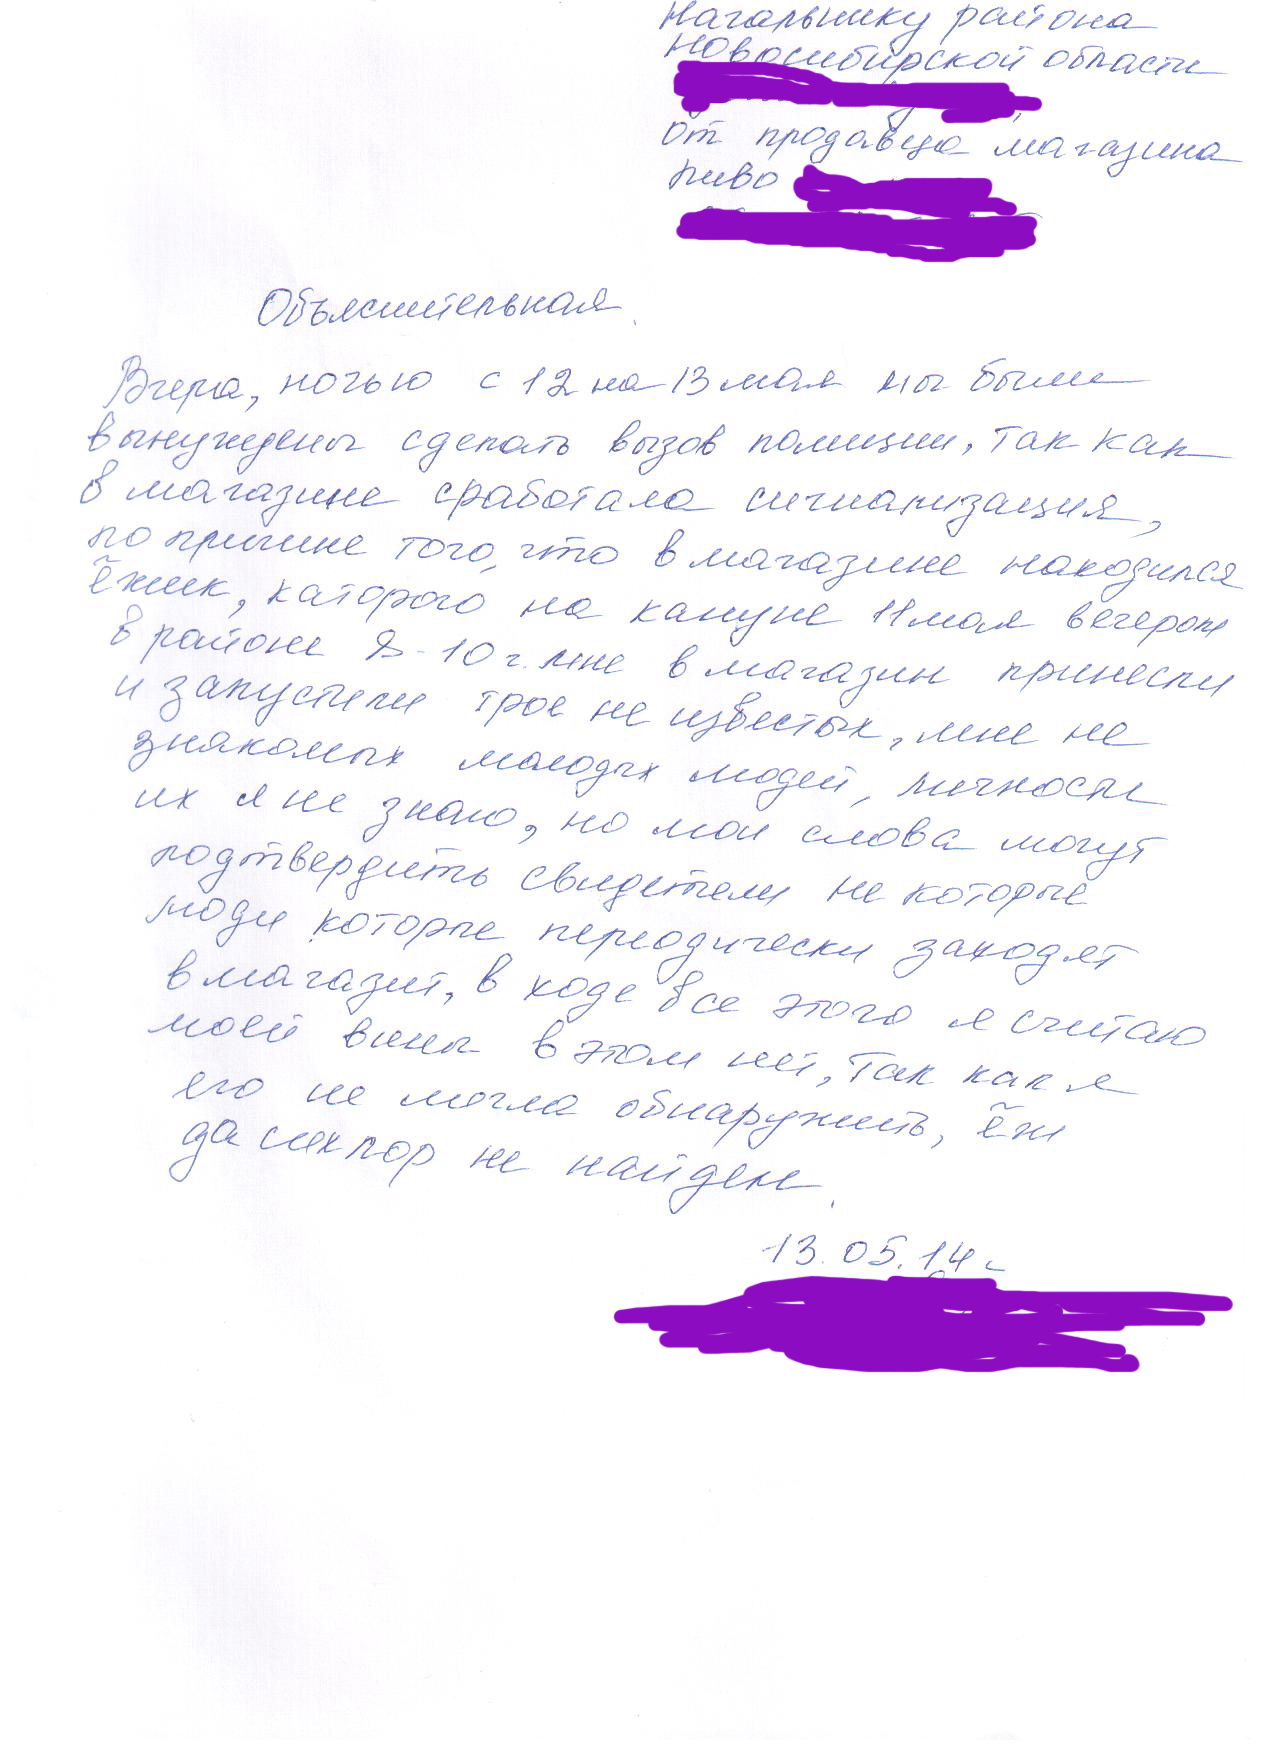 Начальнику района
Новосибирской области
от продавца магазина
пиво
Объяснительная.
Вчера, ночью с 12 на 13 мая мы были
вынуждены сделать вызов полиции, так как
в магазине сработала сигнализация,
по причине того, что в магазине находился
ёжик, каторого на кануне 11 мая вечером
в районе 8-10 ч. мне в магазин принесли
и запустили трое не известых, мне не
знакомых молодых людей, личности
их я не знаю, но мои слова могут
подтвердить свидетели не которые
люди которые переодически заходят
в магазин, в ходе все этого я считаю
моей вины в этом нет, так как я
его не могла обнаружить, ёж
да сих пор не найден.
13.05.14 г